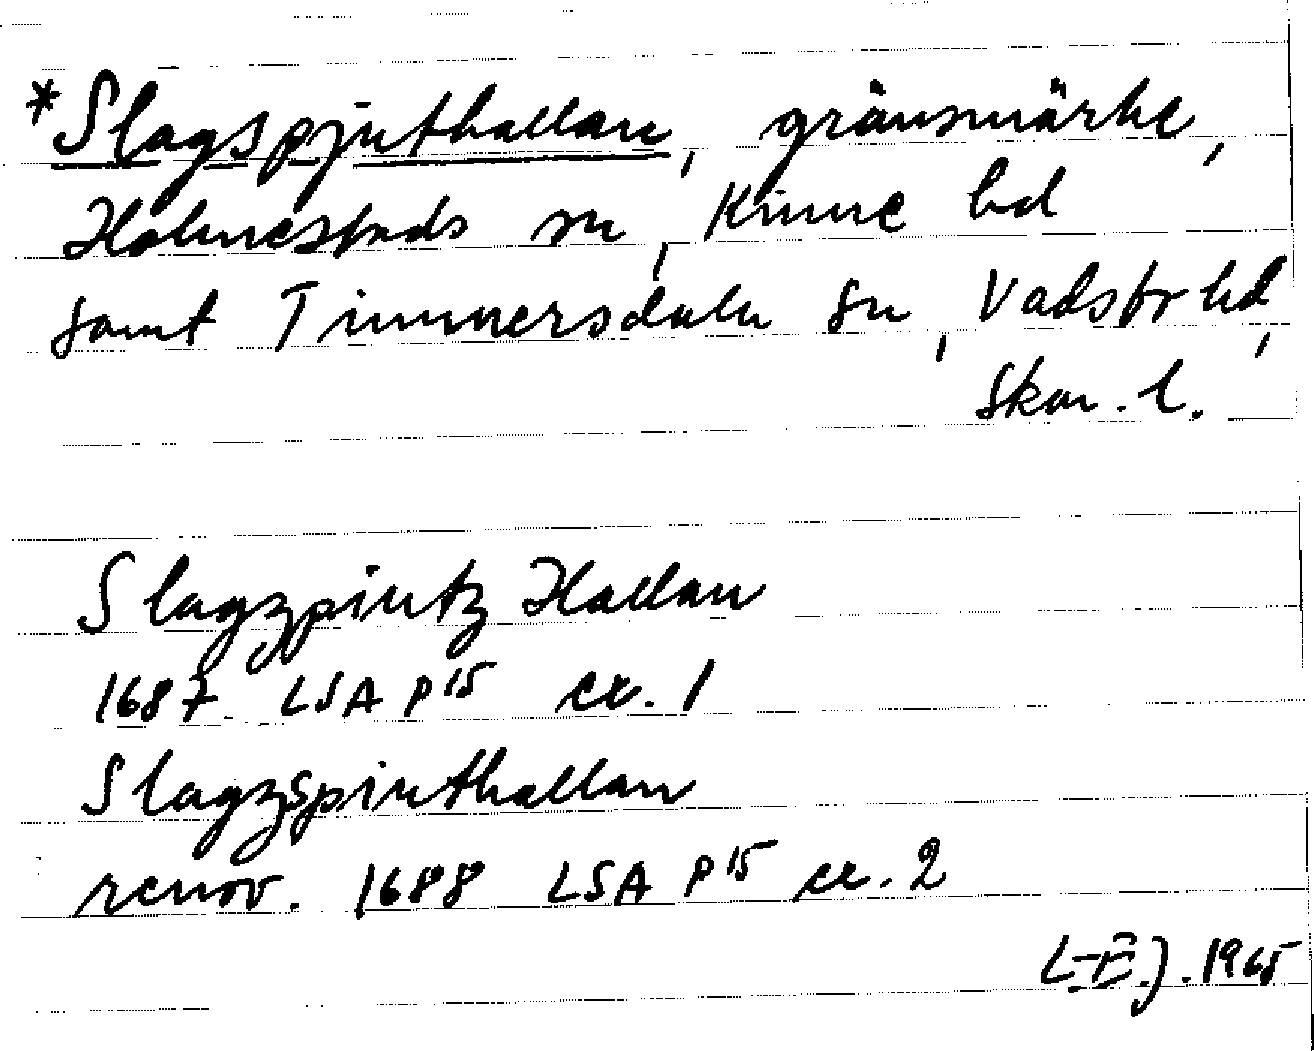 *Slagspjuthallan, gränsmärke,
Holmestads sn, Kinne hd
samt Timmersdala sn, Vadsbr hd,
Skar. l.
Slagzpiutz Hallan
1687 LSA P15 ex. 1
Slagzspiuthallan
renov. 1688 LSA P15 ex. 2
L-EJ. 1965